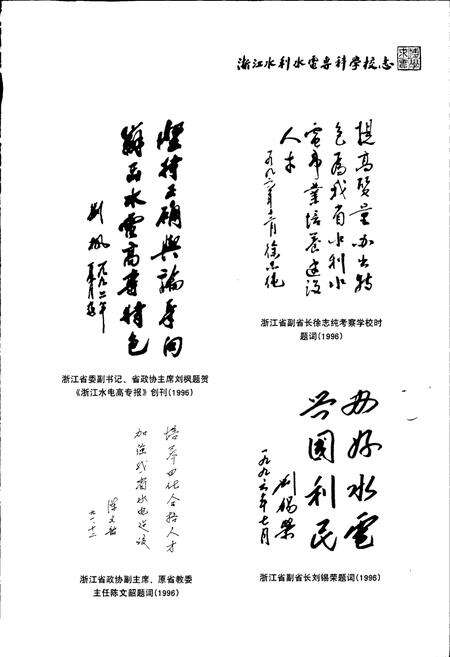 浙江水利水电专科学校志
坚持正确舆论导向
办出水电高专特色
刘枫
一九九六年
浙江省委副书记、省政协主席刘枫题贺
《浙江水电高专报》创刊(1996)
提高质量办出特
色为我省水利水
电事业培养建设
人才
徐志纯
浙江省副省长徐志纯考察学校时
题词(1996)
培养四化合格人才
加强我省水电建设
陈文韶
浙江省政协副主席、原省教委
主任陈文韶题词(1996)
办好水电
兴国利民
刘锡荣
一九九六年七月
浙江省副省长刘锡荣题词(1996)